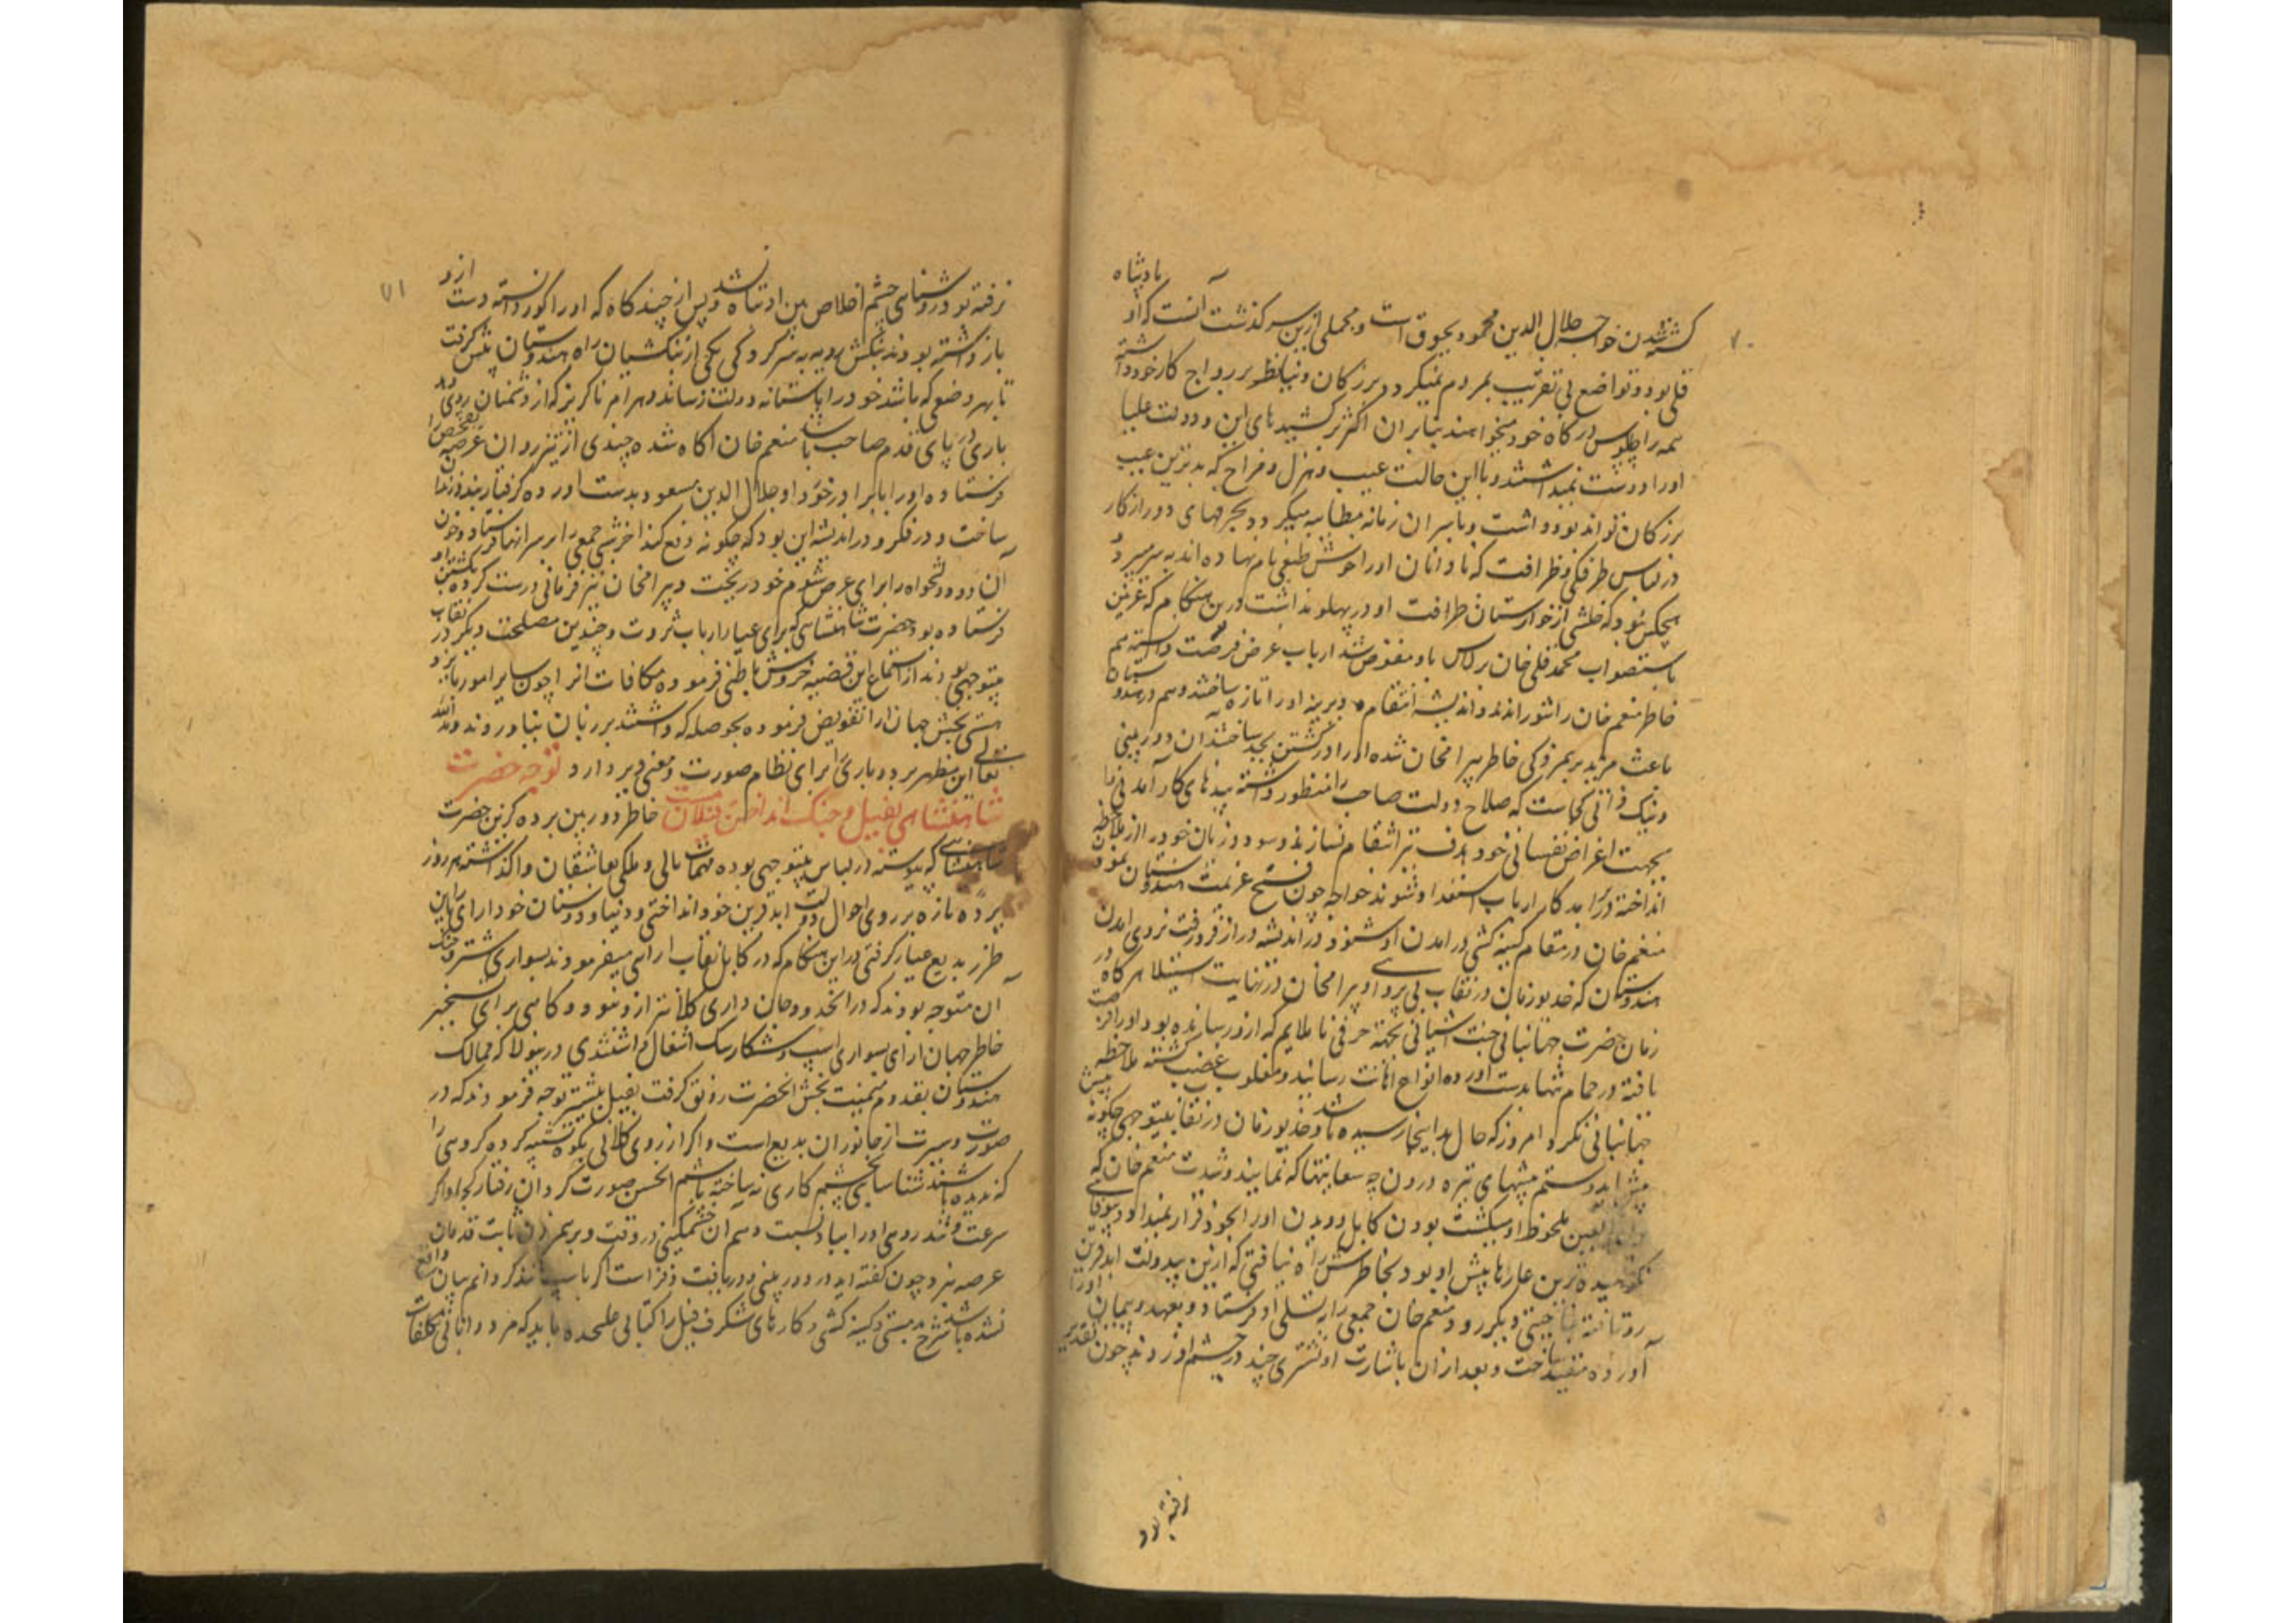 ۷۰
پادشاه
کشته شدن خواجه جلال الدین محمود بجوق است و مجملی ازین سرگذشت آنست که او
قلی بود و تواضع بی تقریب بمردم نمیکرد و بزرگان دنیا نظر بر رواج کار خود داشته
همه را چاپلوس درگاه خود میخواهند بنابر آن اکثر برکشیدهای این دودولت علیا
او را دوست نمیداشتند و با این حالت عیب و هزل و مزاح که بدترین عیب
بزرگان تواند بود داشت و با سران زمانه مطایبه میکرد و بحرفهای دور از کار
در لباس طرفگی و ظرافت که نادانان او را خوش طبعی نام نهاده اند بسر میبرد
هیچکس نبود که خلشی از خارستان ظرافت او در پهلو نداشت درین هنگام که غزنین
باستصواب محمد قلی خان برلاس باو مفوض شد ارباب غرض فرصت دانسته هم
خاطر منعم خان را شورانیدند و اندیشه انتقام دیرینه او را تازه ساختند و هم در هندوستان
باعث مزید برهمزدگی خاطر بیرامخان شده او را در کشتن بجد ساختند آن دوربینی
و نیک ذاتی کجاست که صلاح دولت صاحب را منظور داشته بندهای کارآمدنی را
بجهت اغراض نفسانی خود هدف تیر انتقام نسازند و سود و زیان خود را از ملاحظه
انداخته درآمد کار ارباب استعداد شوند خواجه چون فسخ عزیمت هندوستان نمود
منعم خان در مقام کینه کشی درآمدن او شنود و در اندیشه دراز فرو رفت نه روی آمدن
هندوستان که خدیو زمان در نقاب بی پروایی و بیرامخان در نهایت استیلا هرگاه در
زمان حضرت جهانبانی جنت آشیانی بجهت حرفی ناملایم که ازو رسانیده بود او را فرصت
یافته در حمام تنها بدست آورده انواع اهانت رسانید و مغلوب غضب گشته ملاحظه
جهانبانی نکرد امروز که حال بداینجا رسیده باشد و خدیو زمان در نقاب بیتوجهی چگونه پیش
میش آید و ستم پیشهای تیره درون چه سعایتها که نمایند و شدت منعم خان که
العین ملحوظ او میگشت بودن کابل و دیدن او را بخود قرار نمیداد و بیوفایی
نکوهیده ترین عارها پیش او بود و بخاطرش راه نیافتی که ازین دولت ابدقرین
روتافته بناحیتی دیگر رود منعم خان جمعی را به تسلی او فرستاد و بعهد و پیمان او را
آورده مقید ساخت و بعد از آن باشارت او نشتری چند در چشم او زدند چون تقدیر
رفته بود
۷۱
نرفته بود در روشنایی چشم اخلاص بین او تباهی نشد و پس از چندگاه که او را کور دانسته دست ازو
بازداشته بودند بنگش رویه به سرکردگی یکی از بنگشیان راه هندوستان پیش گرفت
تا بهر وضعی که باشد خود را باستانه دولت رساند و هرآم ناگزیر که از دشمنان روی دهد
باری در پای قدم صاحب باشد منعم خان آگاه شده چندی از تیزروان عرصه تفحص را
فرستاده او را با برادر خورد او جلال الدین مسعود بدست آورده گرفتار بند زندان
ساخت و در فکر و در اندیشه این بود که چگونه دفع کند آخر شبی جمعی را بر سر آنها فرستاد و خون
آن دو دولتخواه را برای غرض شوم خود ریخت و بیرامخان نیز فرمانی درست کرده بکشتن او
فرستاده بود حضرت شاهنشاهی که برای عیار ارباب ثروت و چندین مصلحت دیگر در نقاب
بیتوجهی بودند از استماع این قضیه خروش باطنی فرموده مکافات آنرا چون سایر امور بایزد
هستی بخش جهان آرا تفویض فرموده بحوصله که داشتند بر زبان نیاوردند و الله
تعالی این مظهر بردباری را برای نظام صورت و معنی دیر دارد توجه حضرت
شاهنشاهی بفیل و جنگ انداختن فیلان مست خاطر دوربین پرده گزین حضرت
شاهنشاهی که پیوسته در لباس بیتوجهی بوده مهمات مالی و ملکی بعاشقان واگذاشته هر روز
پرده تازه بر روی احوال دولت ابدقرین خود انداختی و دنیا و دوستان خودارای را باین
طرز بدیع عیار گرفتی در این هنگام که در کابل نقاب آرایی میفرمودند بسواری شتر و جنگ
آن متوجه بودند که در انحدود جان داری کلانتر ازو نبود و گاهی برای تسخیر
خاطر جهان آرای بسواری اسپ و شکار سگ اشتغال داشتندی درینولا که ممالک
هندوستان بقدوم میمنت بخش آنحضرت رونق گرفت بفیل بیشتر توجه فرمودند که در
صورت و سیرت از جانوران بدیع است و اگر از روی کلانی بکوه تشبیه کرده گروهی را
که ندیده باشند شناسا کنم چشم کاری نساخته باشم الحسن صورت گردان رفتار کجا و اگر
سرعت و تندروی او را بباد نسبت دهم آن خشمگینی در وقت و برهم زدن ثابت قدمان
عرصه نبرد چون گفته آید در دوربینی و دریافت و فراست اگر باسپ مانند گردانم بیان واقع
نشده باشد شرح مستی و کینه کشی و کارهای شگرف فیل را کتابی علیحده باید که مرد دانایی تکلفات